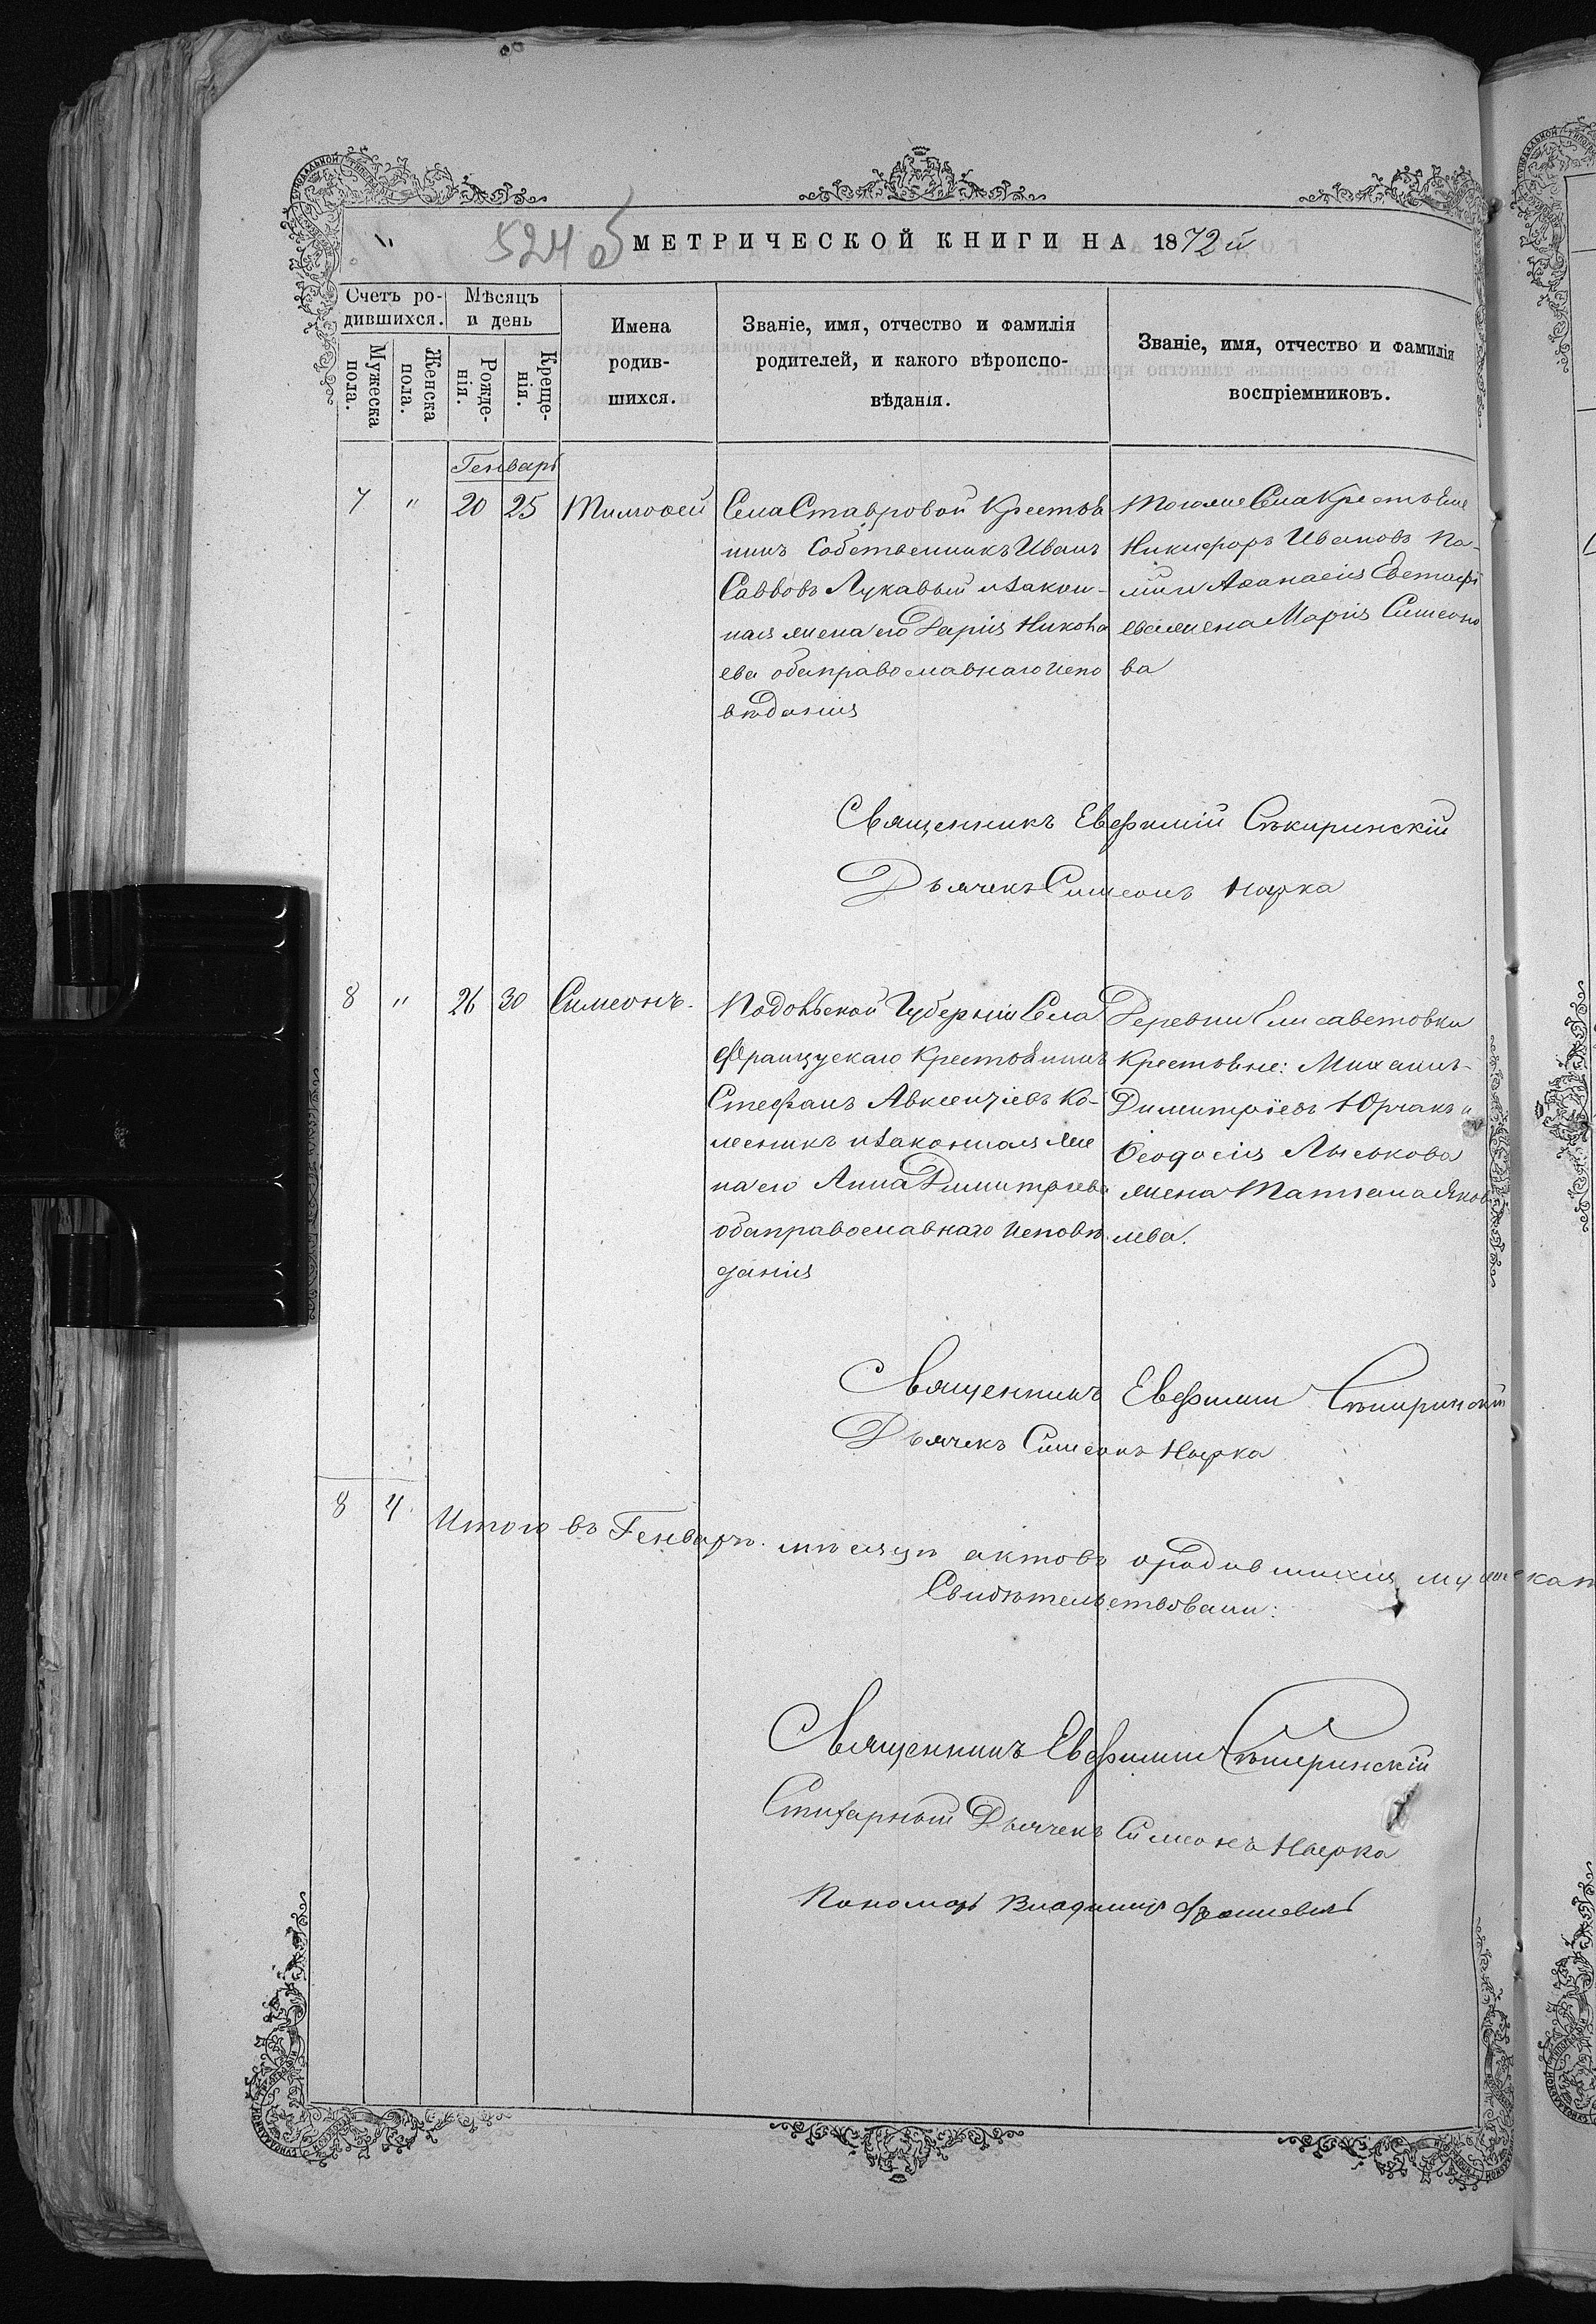 524 об
МЕТРИЧЕСКОЙ КНИГИ НА 1872й
Счетъ ро-
дившихся.
Мужеска
пола.
Женска
пола.
Мѣсяцъ
и день
Рожде-
нія.
Креще-
нія.
Имена
родив-
шихся.
Званіе, имя, отчество и фамилія
родителей, и какого вѣроиспо-
вѣданія.
Званіе, имя, отчество и фамилія
воспріемниковъ.
Генварь
7 " 20 25 Тимоѳей
Села Ставровой Крестья
нинъ Собственникъ Иванъ
Саввовъ Лукавый и закон-
ная жена его Дарія Никола
ева оба православнаго испо
вѣданія
Тогоже Села Крестьяне
Никифоръ Ивановъ Па-
и Аѳанасія Евстафі
ева жена Марія Симеоно
ва
Священникъ Евфимій Сѣкиринскій
Дьячекъ Симеонъ
8 " 26 30 Симеонъ.
Подольской Губерніи Села
Французскаго Крестьянинъ
Стефанъ Авксентіевъ Ко-
лесникъ и законная же
на его Анна Димитріева
оба православнаго исповѣ
данія
Деревни Елисаветовки
Крестьяне: Михаилъ
Димитріевъ Юрчакъ и
Ѳеодосія Лыськова
жена Татіана Яков
лева.
Священникъ Евфимій Сѣкиринскій
Дьячекъ Симеонъ
8 4 Итого въ Генварѣ мѣсяцѣ актовъ о родившихся мужеска п
Свидѣтельствовали:
Священникъ Евфимій Сѣкиринскій
Стихарный Дьячекъ Симеонъ
Пономарь Владиміръ